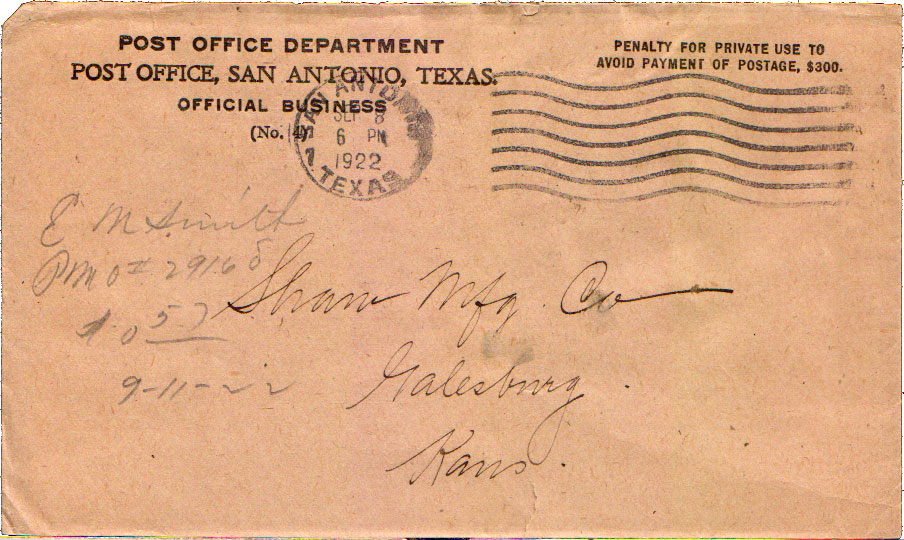 POST OFFICE DEPARTMENT
POST OFFICE, SAN ANTONIO, TEXAS.
OFFICIAL BUSINESS
(No. 4)
PENALTY FOR PRIVATE USE TO
AVOID PAYMENT OF POSTAGE, $300.
SAN ANTONIO
SEP 8
6 PM
1922
1 TEXAS
E M Smith
29165
9-11-22
Shaw Mfg. Co
Galesburg
Kans.